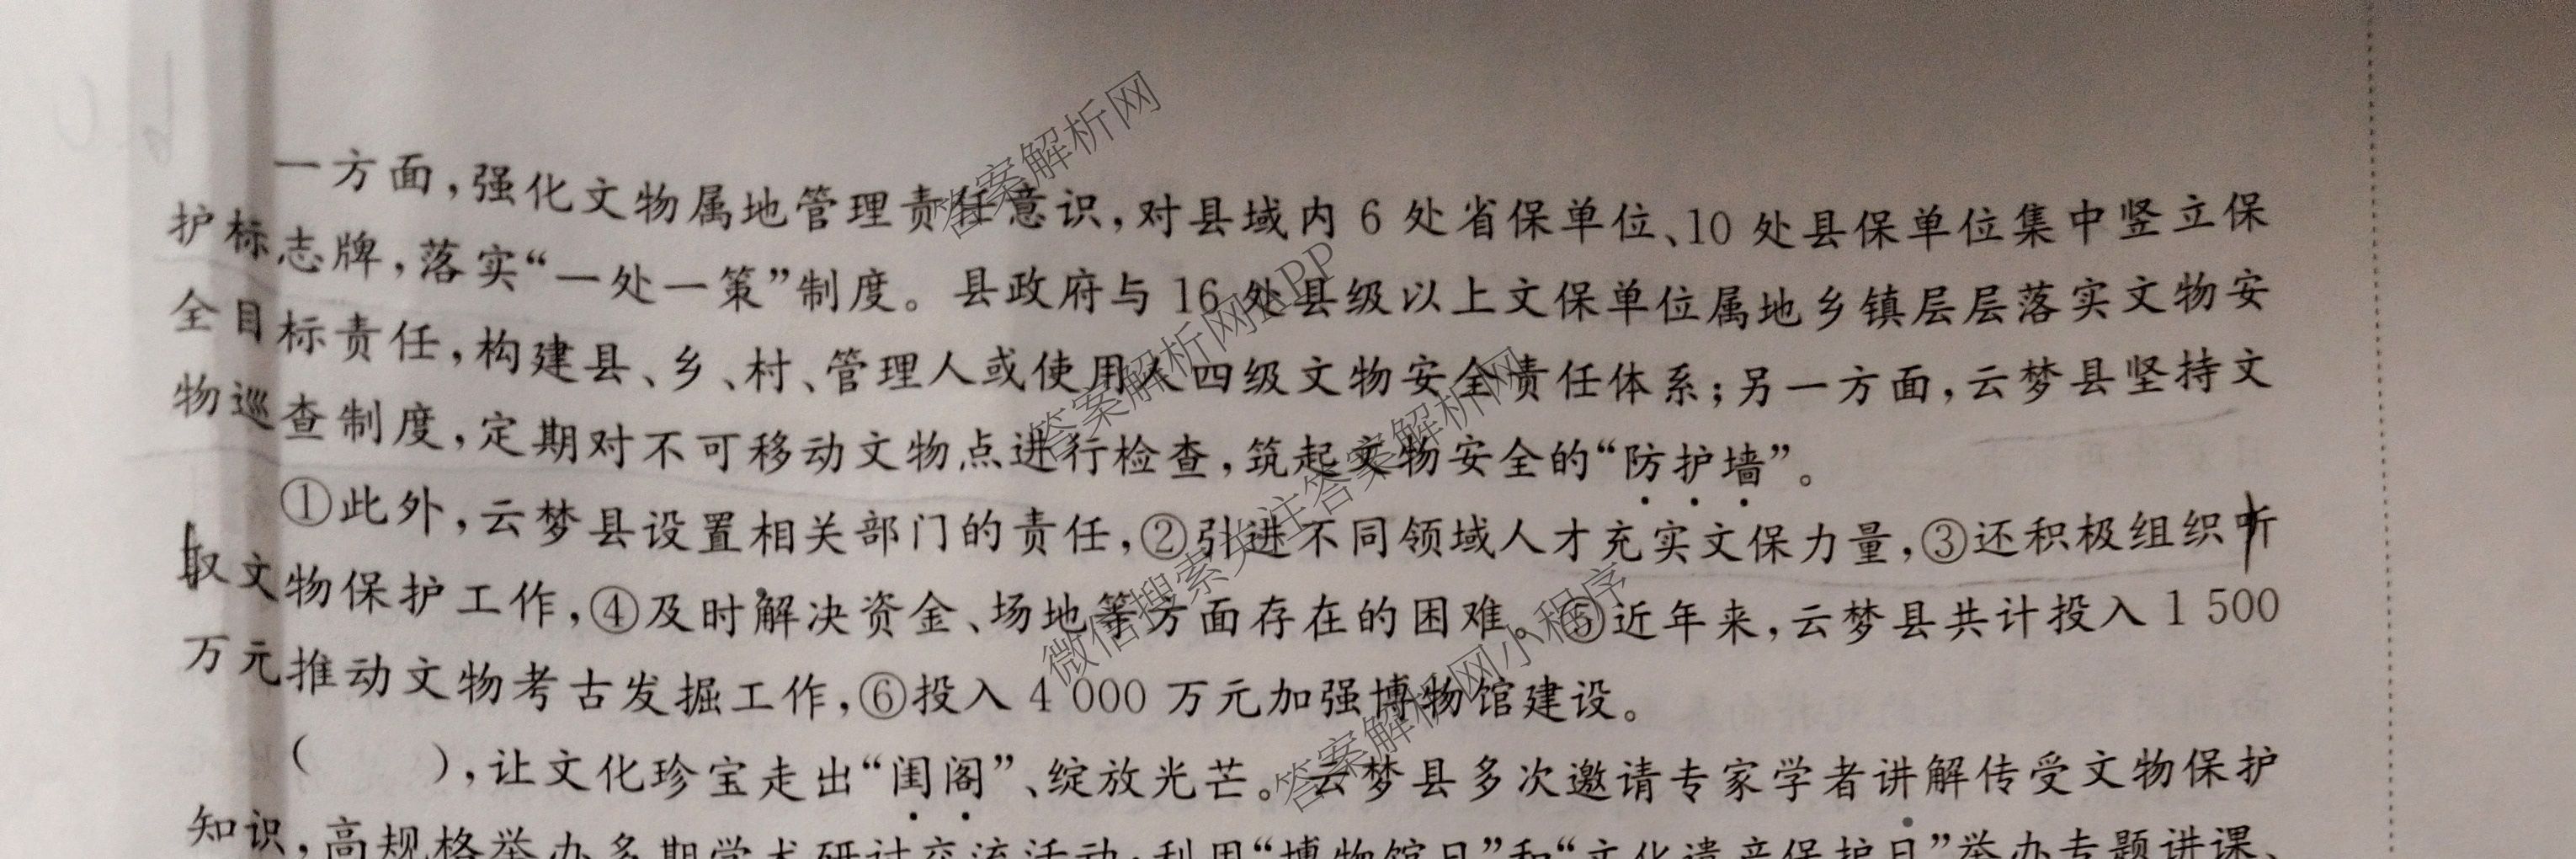 一方面,强化文物属地管理责任意识,对县域内 6 处省保单位、10 处县保单位集中竖立保
护标志牌,落实“一处一策”制度。县政府与 16 处县级以上文保单位属地乡镇层层落实文物安
全目标责任,构建县、乡、村、管理人或使用人四级文物安全责任体系;另一方面,云梦县坚持文
物巡查制度,定期对不可移动文物点进行检查,筑起文物安全的“防护墙”。
①此外,云梦县设置相关部门的责任,②引进不同领域人才充实文保力量,③还积极组织听
取文物保护工作,④及时解决资金、场地等方面存在的困难。⑤近年来,云梦县共计投入 1 500
万元推动文物考古发掘工作,⑥投入 4 000 万元加强博物馆建设。
( ),让文化珍宝走出“闺阁”、绽放光芒。云梦县多次邀请专家学者讲解传受文物保护
知识,高规格举办多期学术研讨交流活动;利用“博物馆日”和“文化遗产保护日”举办专题讲课、
答案解析网
答案解析网APP
微信搜索关注答案解析网
答案解析网小程序